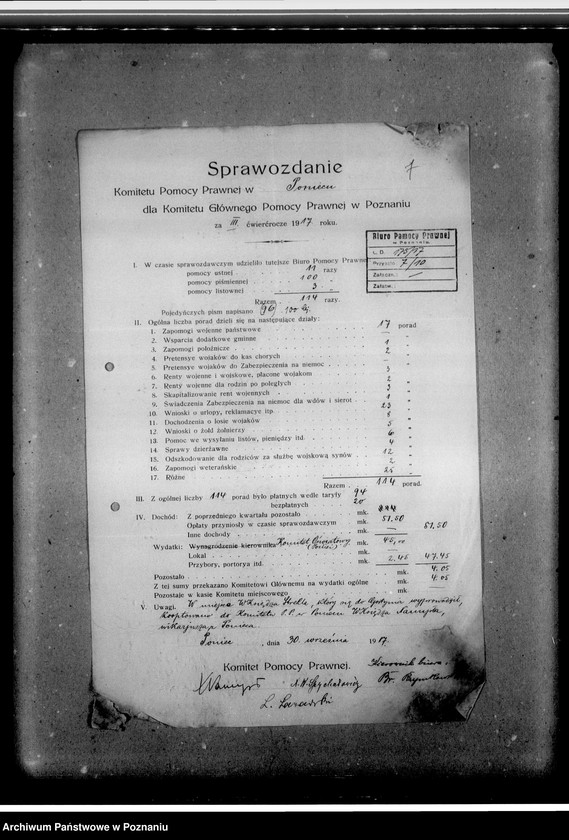 Sprawozdanie
7
Komitetu Pomocy Prawnej w Poniecu
dla Komitetu Głównego Pomocy Prawnej w Poznaniu
za III ćwierćrocze 1917 roku.
Biuro Pomocy Prawnej
w Poznaniu.
L. D. 175/17
Przyszło: 7/10
Załączn.: —
Załatw.:
I. W czasie sprawozdawczym udzieliło tutejsze Biuro Pomocy Prawnej
pomocy ustnej 11 razy
pomocy piśmiennej 100 "
pomocy listownej 3 "
Razem 114 razy.
Pojedyńczych pism napisano 96
II. Ogólna liczba porad dzieli się na następujące działy:
1. Zapomogi wojenne państwowe 17 porad
2. Wsparcia dodatkowe gminne — "
3. Zapomogi położnicze 1 "
4. Pretensye wojaków do kas chorych 2 "
5. Pretensye wojaków do Zabezpieczenia na niemoc — "
6. Renty wojenne i wojskowe, płacone wojakom 3 "
7. Renty wojenne dla rodzin po poległych 2 "
8. Skapitalizowanie rent wojennych 3 "
9. Świadczenia Zabezpieczenia na niemoc dla wdów i sierot 1 "
10. Wnioski o urlopy, reklamacye itp. 23 "
11. Dochodzenia o losie wojaków 8 "
12. Wnioski o żołd żołnierzy 5 "
13. Pomoc we wysyłaniu listów, pieniędzy itd. 6 "
14. Sprawy dzierżawne 4 "
15. Odszkodowanie dla rodziców za służbę wojskową synów 12 "
16. Zapomogi weterańskie 2 "
17. Różne 25 "
Razem 114 porad.
III. Z ogólnej liczby 114 porad było płatnych wedle taryfy 94
bezpłatnych 20
IV. Dochód: Z poprzedniego kwartału pozostało mk.
Opłaty przyniosły w czasie sprawozdawczym mk. 51.50
Inne dochody mk. — 51.50
Wydatki: Wynagrodzenie kierownika Komitet Oświatowy (Poniec) mk. 45,00
Lokal mk. —
Przybory, portorya itd. mk. 2.45 47.45
Pozostało mk. 4.05
Z tej sumy przekazano Komitetowi Głównemu na wydatki ogólne mk. 4.05
Pozostaje w kasie Komitetu miejscowego mk.
V. Uwagi. W miejsce W. Księdza który się do Gostynia wyprowadził,
kooptowano do Komitetu P. P. w Poniecu W. Księdza
wikarjusza z Ponieca
Poniec, dnia 30 września 1917.
Komitet Pomocy Prawnej.
Kierownik biura.
Archiwum Państwowe w Poznaniu